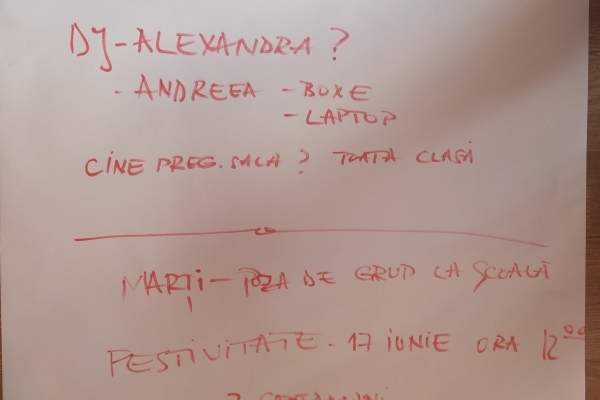 DJ-ALEXANDRA ?
- ANDREEA - BOXE
- LAPTOP
CINE PREG. SALA ? TOATĂ CLASĂ
MARȚI - POZA DE GRUP LA ȘCOALĂ
FESTIVITATE - 17 IUNIE ORA 12⁰⁰